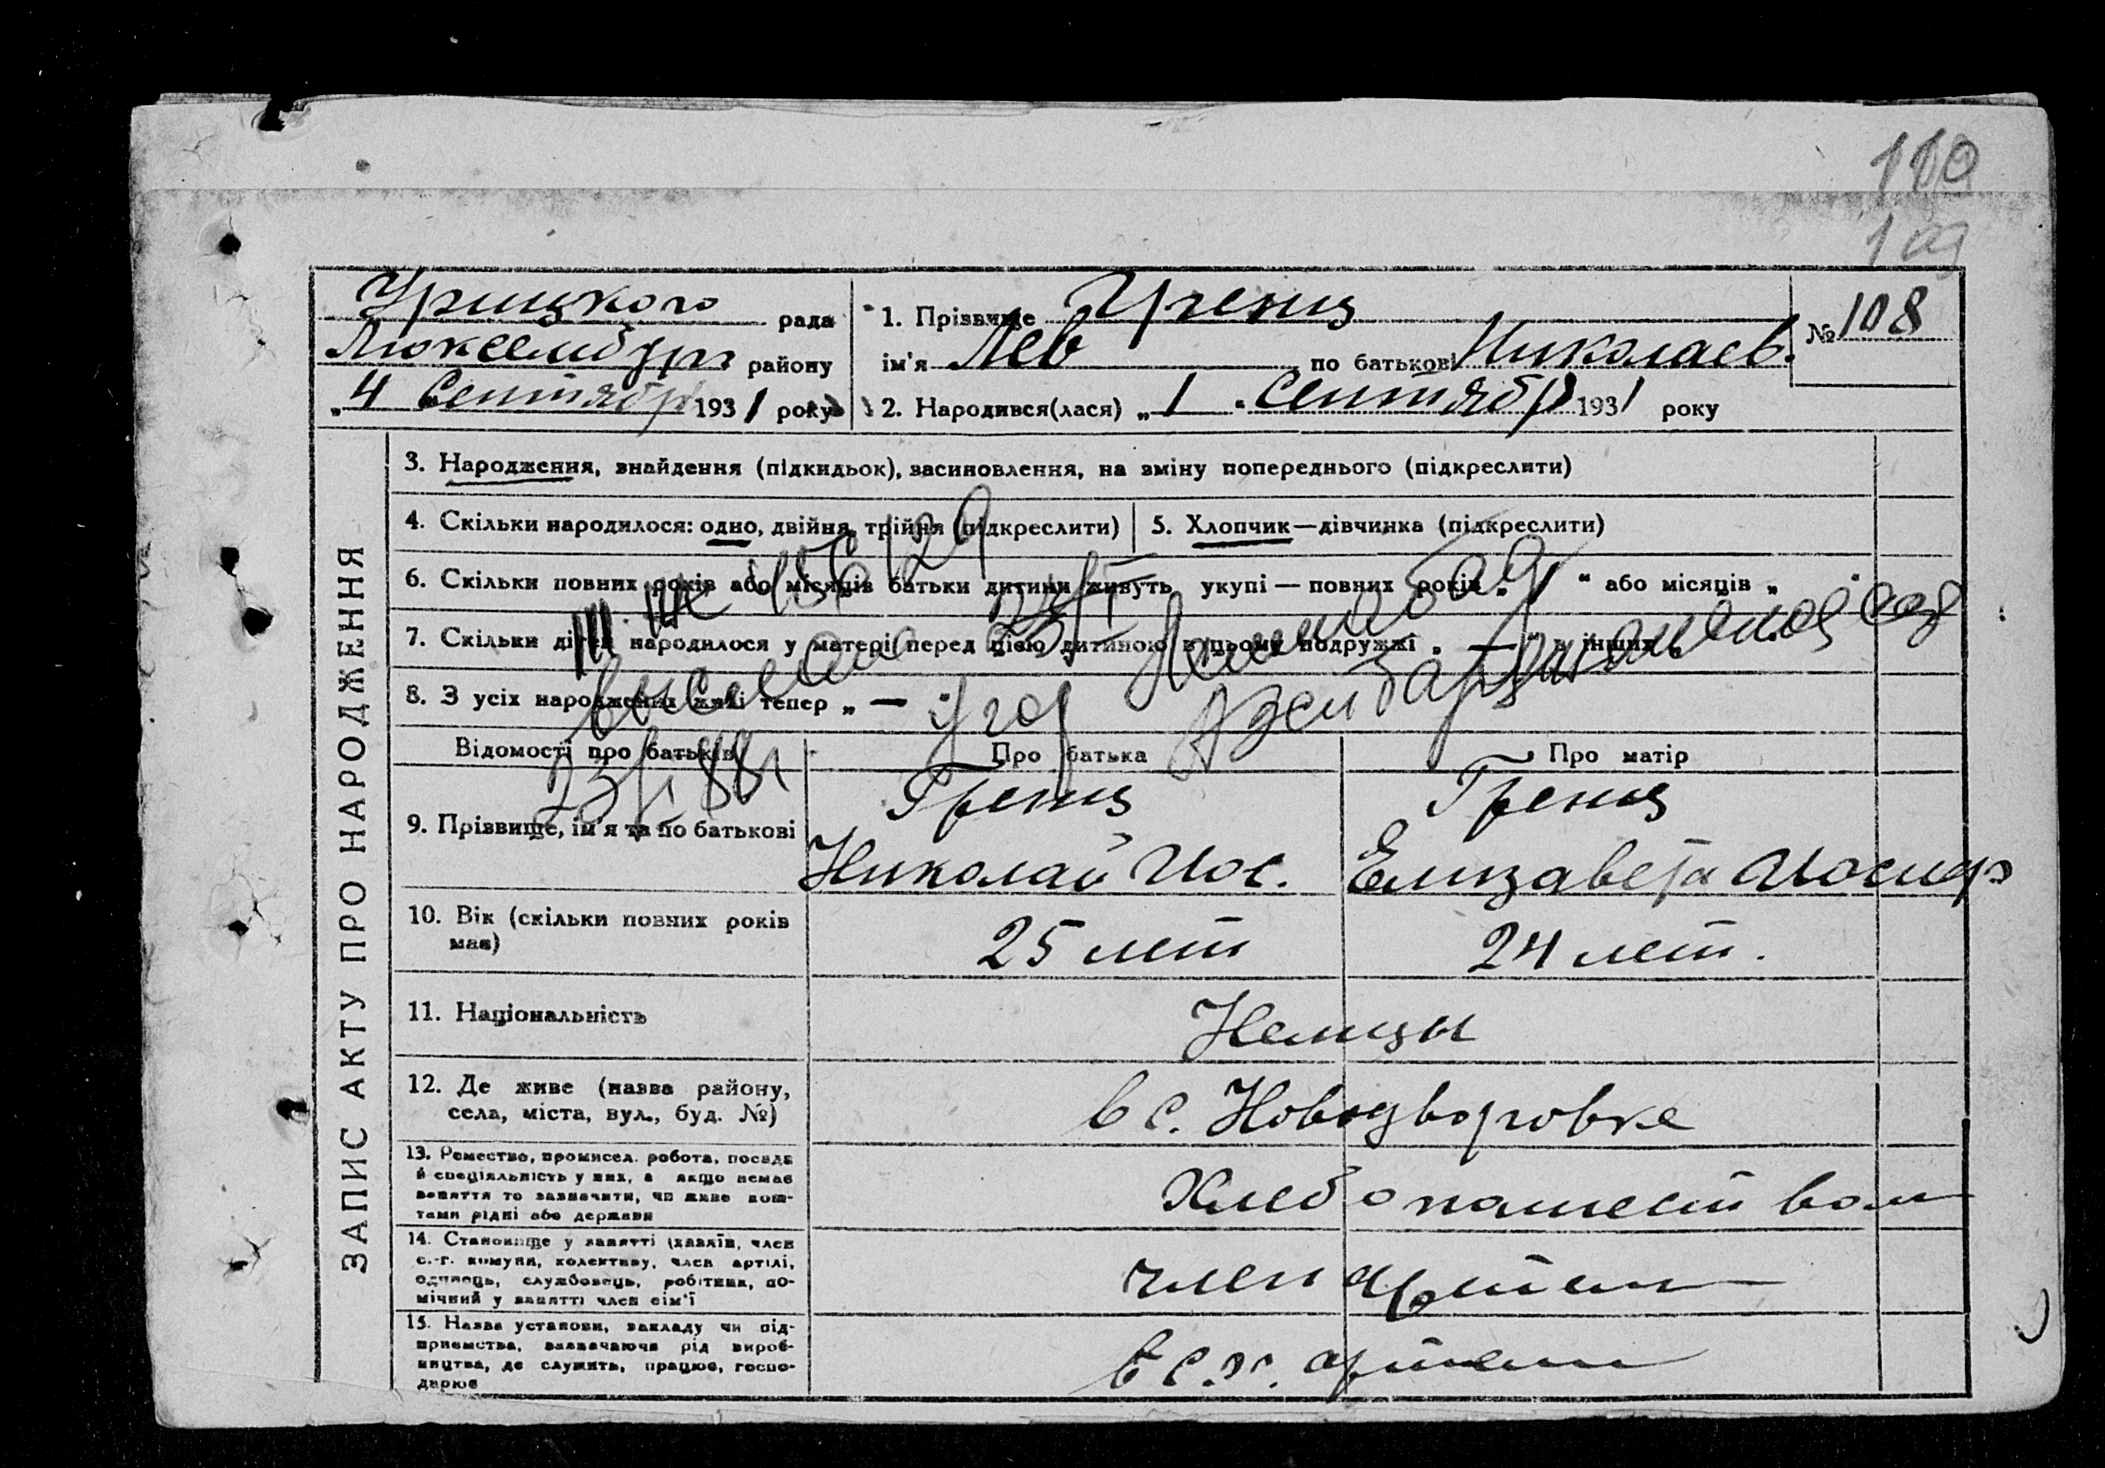 110
109
Урицкого рада
Люксембург району
„4 Сентября 1931 року
1. Прізвище Гренц
ім'я Лев по батькові Николаев.
2. Народився(лася) „1“ Сентября 1931 року
№ 108
ЗАПИС АКТУ ПРО НАРОДЖЕННЯ
3. Народження, знайдення (підкидьок), засиновлення, на зміну попереднього (підкреслити)
4. Скільки народилося: одно, двійня, трійня (підкреслити)
5. Хлопчик—дівчинка (підкреслити)
6. Скільки повних років або місяців батьки дитини живуть укупі — повних років „ “ або місяців „ “
7. Скільки дітей народилося у матері перед цією дитиною в цьому подружжі „ — “ в інших „
8. З усіх народжених живі тепер „ — “
23/I 88г
Відомості про батьків
Про батька
Про матір
9. Прізвище, ім'я та по батькові
Гренц
Николай Иос.
Гренц
Елизавета Иосиф
10. Вік (скільки повних років має)
25 лет
24 лет.
11. Національність
Немцы
12. Де живе (назва району,
села, міста, вул., буд. №)
в с. Новодворовке
13. Ремество, промисел, робота, посада
й спеціяльність у них, а якщо немає
заняття то зазначити, чи живе кош-
тами рідні або держави
Хлебопашеством
14. Становище у занятті (хазяїн, член
с.-г. комуни, колективу, член артілі,
одинець, службовець, робітник, по-
мічний у занятті член сім'ї
член артели
15. Назва установи, закладу чи під-
приємства, зазначаючи рід вироб-
ництва, де служить, працює, госпо-
дарює
в с.х. артели